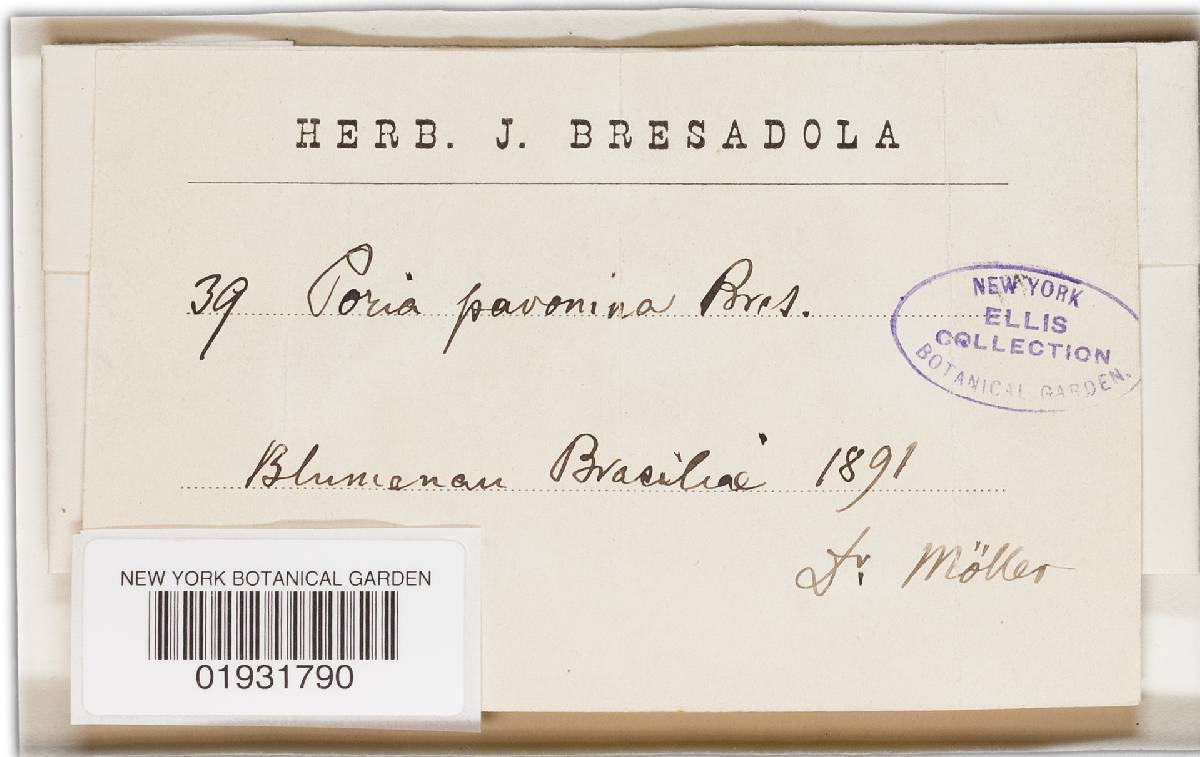 HERB. J. BRESADOLA
39 Poria pavonina Bres.
NEW YORK
ELLIS
COLLECTION
BOTANICAL GARDEN.
Blumenau Brasiliae 1891
Dr. Möller
NEW YORK BOTANICAL GARDEN
01931790